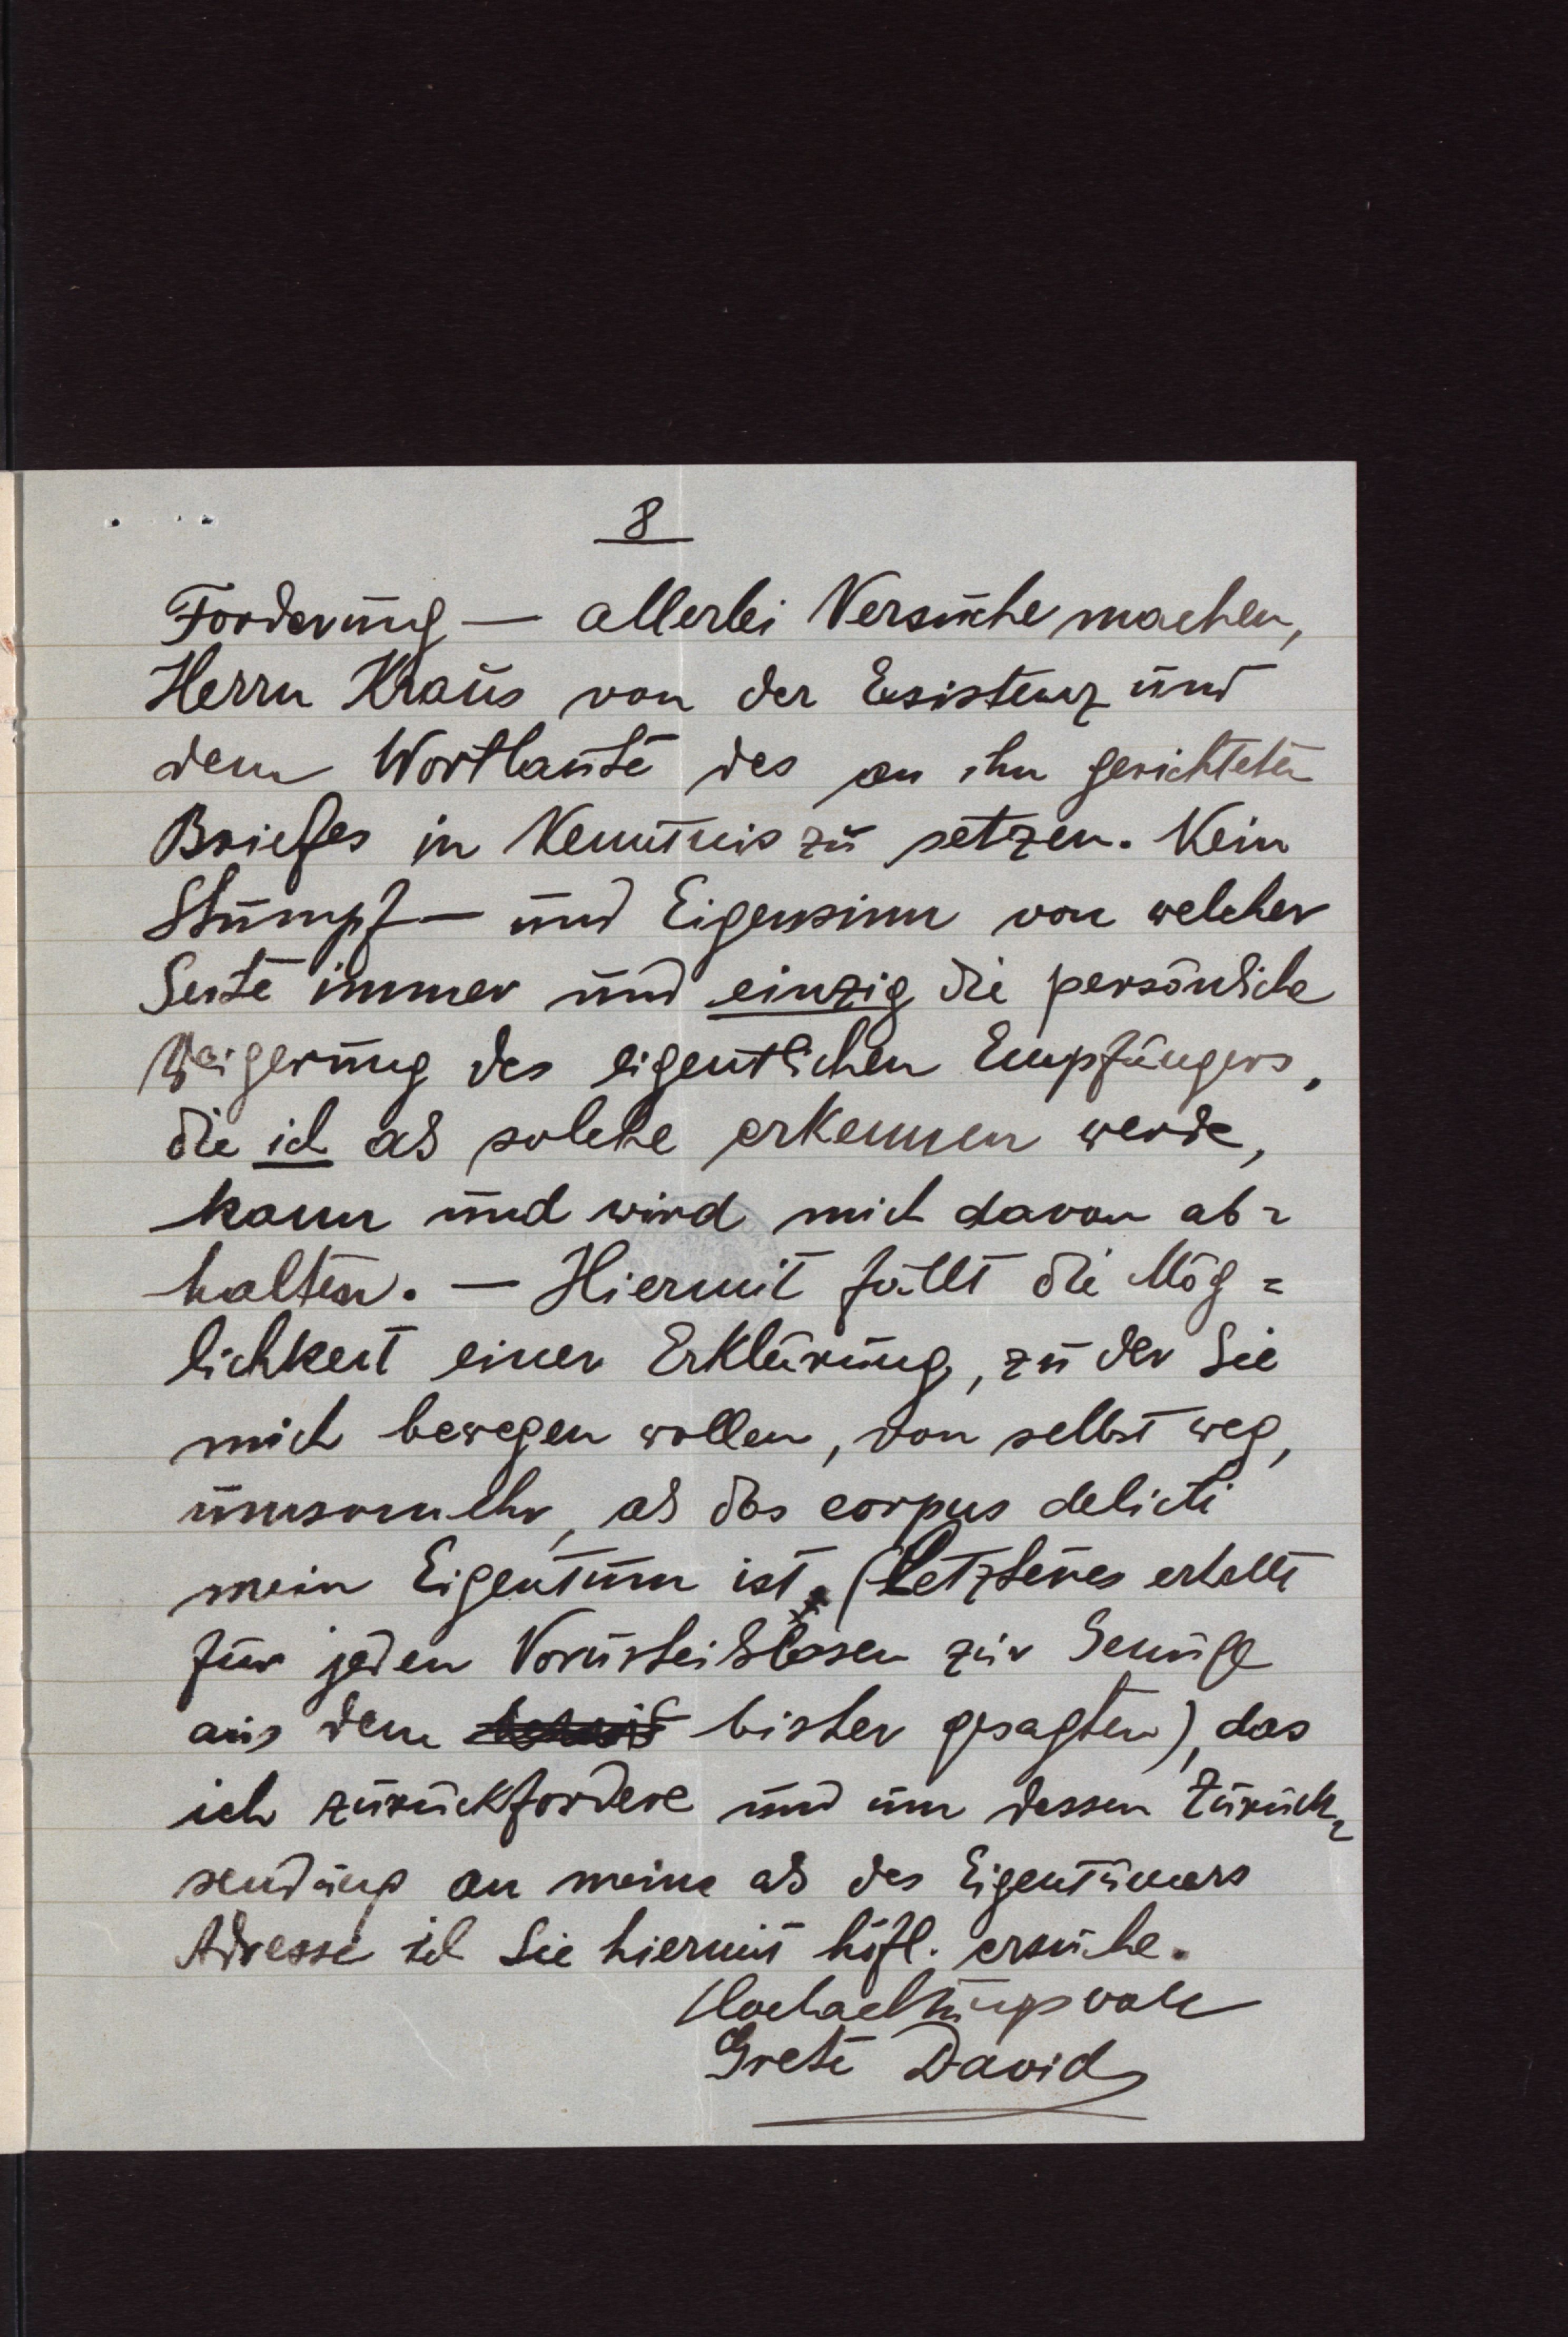 8
Forderung — allerlei Versuche machen,
Herrn Kraus von der Existenz und
dem Wortlaute des an ihn gerichteten
Briefes in Kenntnis zu setzen. Kein
Stumpf- und Eigensinn von welcher
Seite immer und einzig die persönliche
Weigerung des eigentlichen Empfängers,
die ich als solche erkennen werde,
kann und wird mich davon ab=
halten. — Hiermit fällt die Mög=
lichkeit einer Erklärung, zu der Sie
mich bewegen wollen, von selbst weg,
umsomehr, als das corpus delicti
mein Eigentum ist, (Letzteres erhellt
für jeden Vorurteilslosen zur Genüge
aus dem bisher gesagten), das
ich zurückfordere und um dessen Zurück=
sendung an meine als des Eigentümers
Adresse ich Sie hiermit höfl. ersuche.
Hochachtungsvoll
Grete David